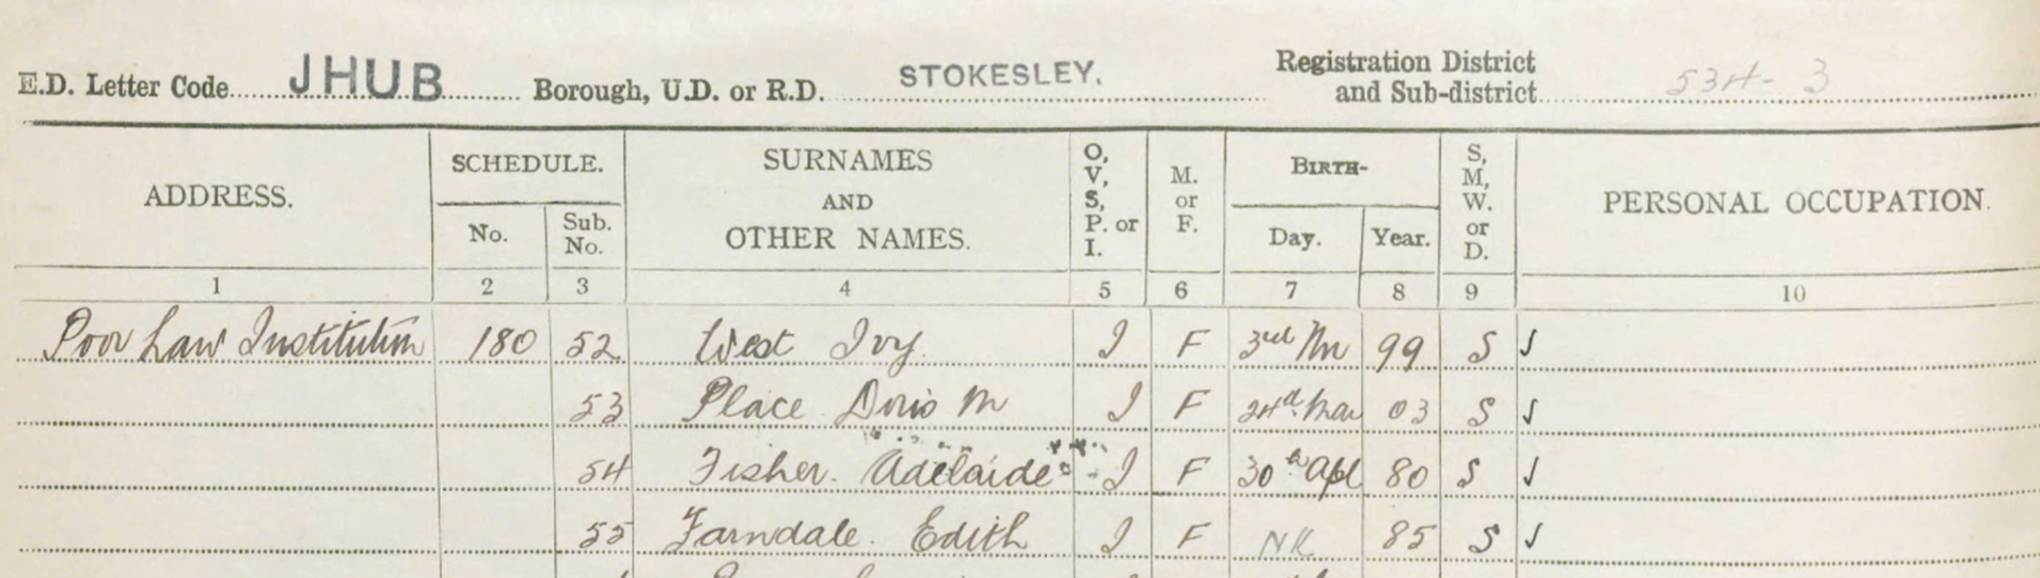 E.D. Letter Code JHUB Borough, U.D. or R.D. STOKESLEY. Registration District and Sub-district 534-3
ADDRESS. SCHEDULE. No. Sub. No. SURNAMES AND OTHER NAMES. O, V, S, P. or I. M. or F. BIRTH- Day. Year. S, M, W. or D. PERSONAL OCCUPATION.
1 2 3 4 5 6 7 8 9 10
Poor Law Institution 180 52 West Ivy. I F 3rd 99 S ✓
53 Place Doris M I F 24th Mar 03 S ✓
54 Fisher. Adelaide I F 30th Apl 80 S ✓
55 Farndale. Edith I F NK 85 S ✓